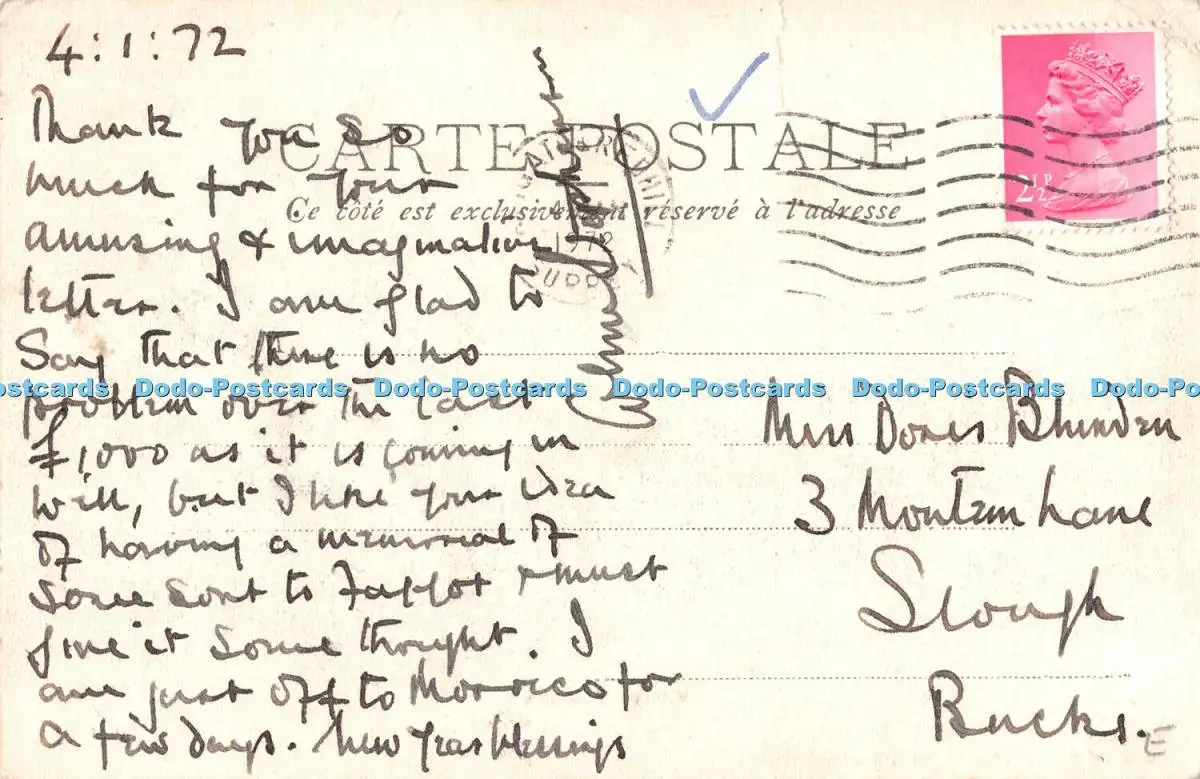 4:1:72
Thank you so
much for your
amusing & imaginative
letter. I am glad to
Say that there is no
problem over the last
£1,000 as it is coming in
well, but I like your idea
of having a memorial of
some sort to & must
give it some thought. I
am just off to Morocco for
a few days. New Year blessings
CARTE POSTALE
Ce côté est exclusivement réservé à l'adresse
2½P
Dodo-Postcards Dodo-Postcards Dodo-Postcards Dodo-Postcards Dodo-Postcards Dodo-Postcards
Miss Doris Blunden
3 Montem Lane
Slough
Bucks.
E